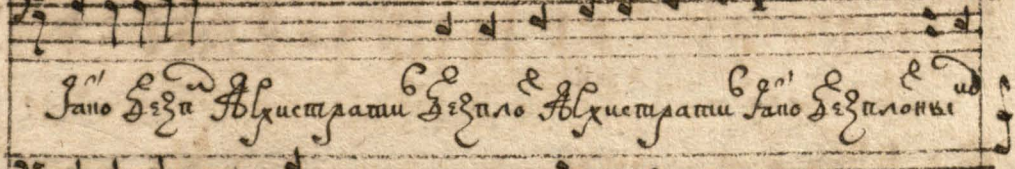 Ꙗко Безп Архистратиг Безпло Архистратиг Ꙗко Безплотны